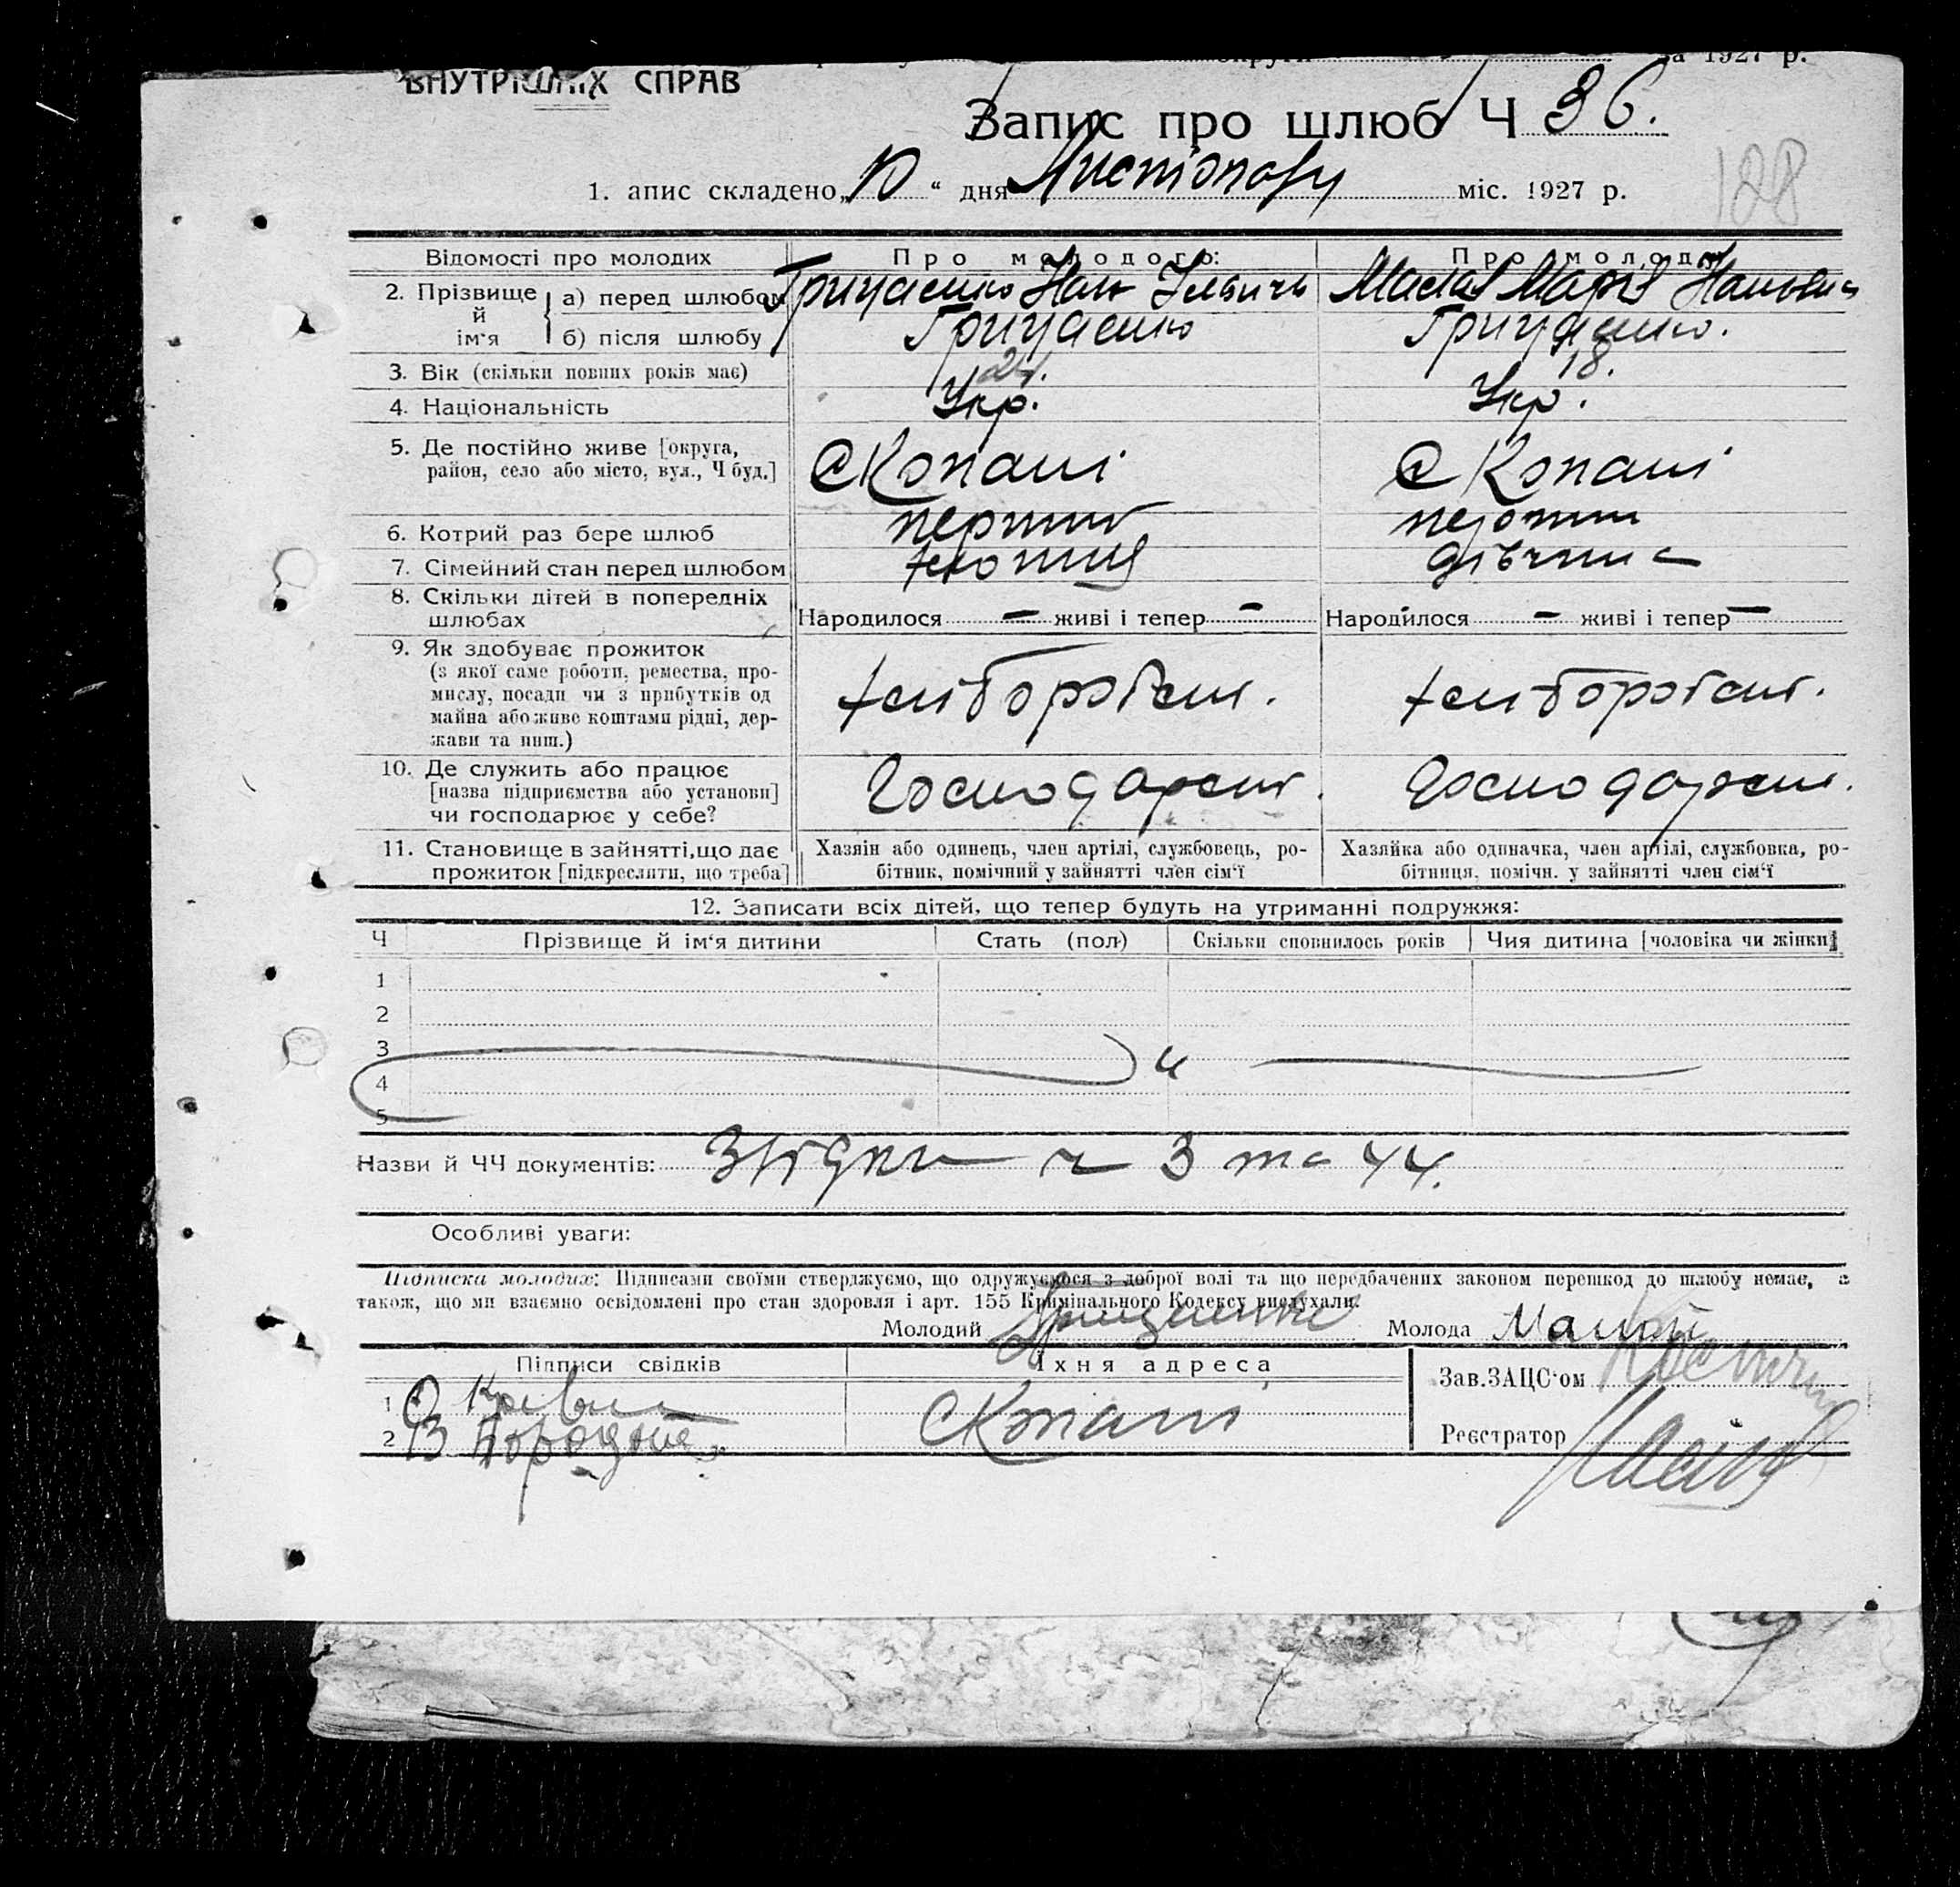 ВНУТРІШНІХ СПРАВ
а 1927 р.
Запис про шлюб Ч 36.
128
1. апис складено „10“ дня Листопаду міс. 1927 р.
Відомості про молодих Про молодого: Про молоду
2. Прізвище й ім'я а) перед шлюбом Гриценко Марія
б) після шлюбу Гриценко Гриценко.
3. Вік (скільки повних років має) 24. 18.
4. Національність Укр. Укр.
5. Де постійно живе [округа, С Копані С Копані
район, село або місто, вул., Ч буд.]
6. Котрий раз бере шлюб перший перший
7. Сімейний стан перед шлюбом дівчина
8. Скільки дітей в попередніх Народилося — живі і тепер — Народилося — живі і тепер —
шлюбах
9. Як здобуває прожиток
(з якої саме роботи, ремества, про-
мислу, посади чи з прибутків од хліборобст. хліборобст.
майна або живе коштами рідні, дер-
жави та инш.)
10. Де служить або працює
[назва підприємства або установи] Господарст. Господарст.
чи господарює у себе?
11. Становище в зайнятті, що дає Хазяін або одинець, член артілі, службовець, ро- Хазяйка або одиначка, член артілі, службовка, ро-
прожиток [підкреслити, що треба] бітник, помічний у зайнятті член сім'ї бітниця, помічн. у зайнятті член сім'ї
12. Записати всіх дітей, що тепер будуть на утриманні подружжя:
Ч Прізвище й ім'я дитини Стать (пол) Скільки сповнилось років Чия дитина [чоловіка чи жінки]
1
2
3
4
5
Назви й ЧЧ документів: ч 3 та 44.
Особливі уваги:
Підписка молодих: Підписами своїми стверджуємо, що одружуємося з доброї волі та що передбачених законом перешкод до шлюбу немає, а
також, що ми взаємно освідомлені про стан здоровля і арт. 155 Кримінального Кодексу вислухали.
Молодий Гриценко Молода
Підписи свідків Їхня адреса Зав. ЗАЦС'ом
1
2 С Копані Реєстратор